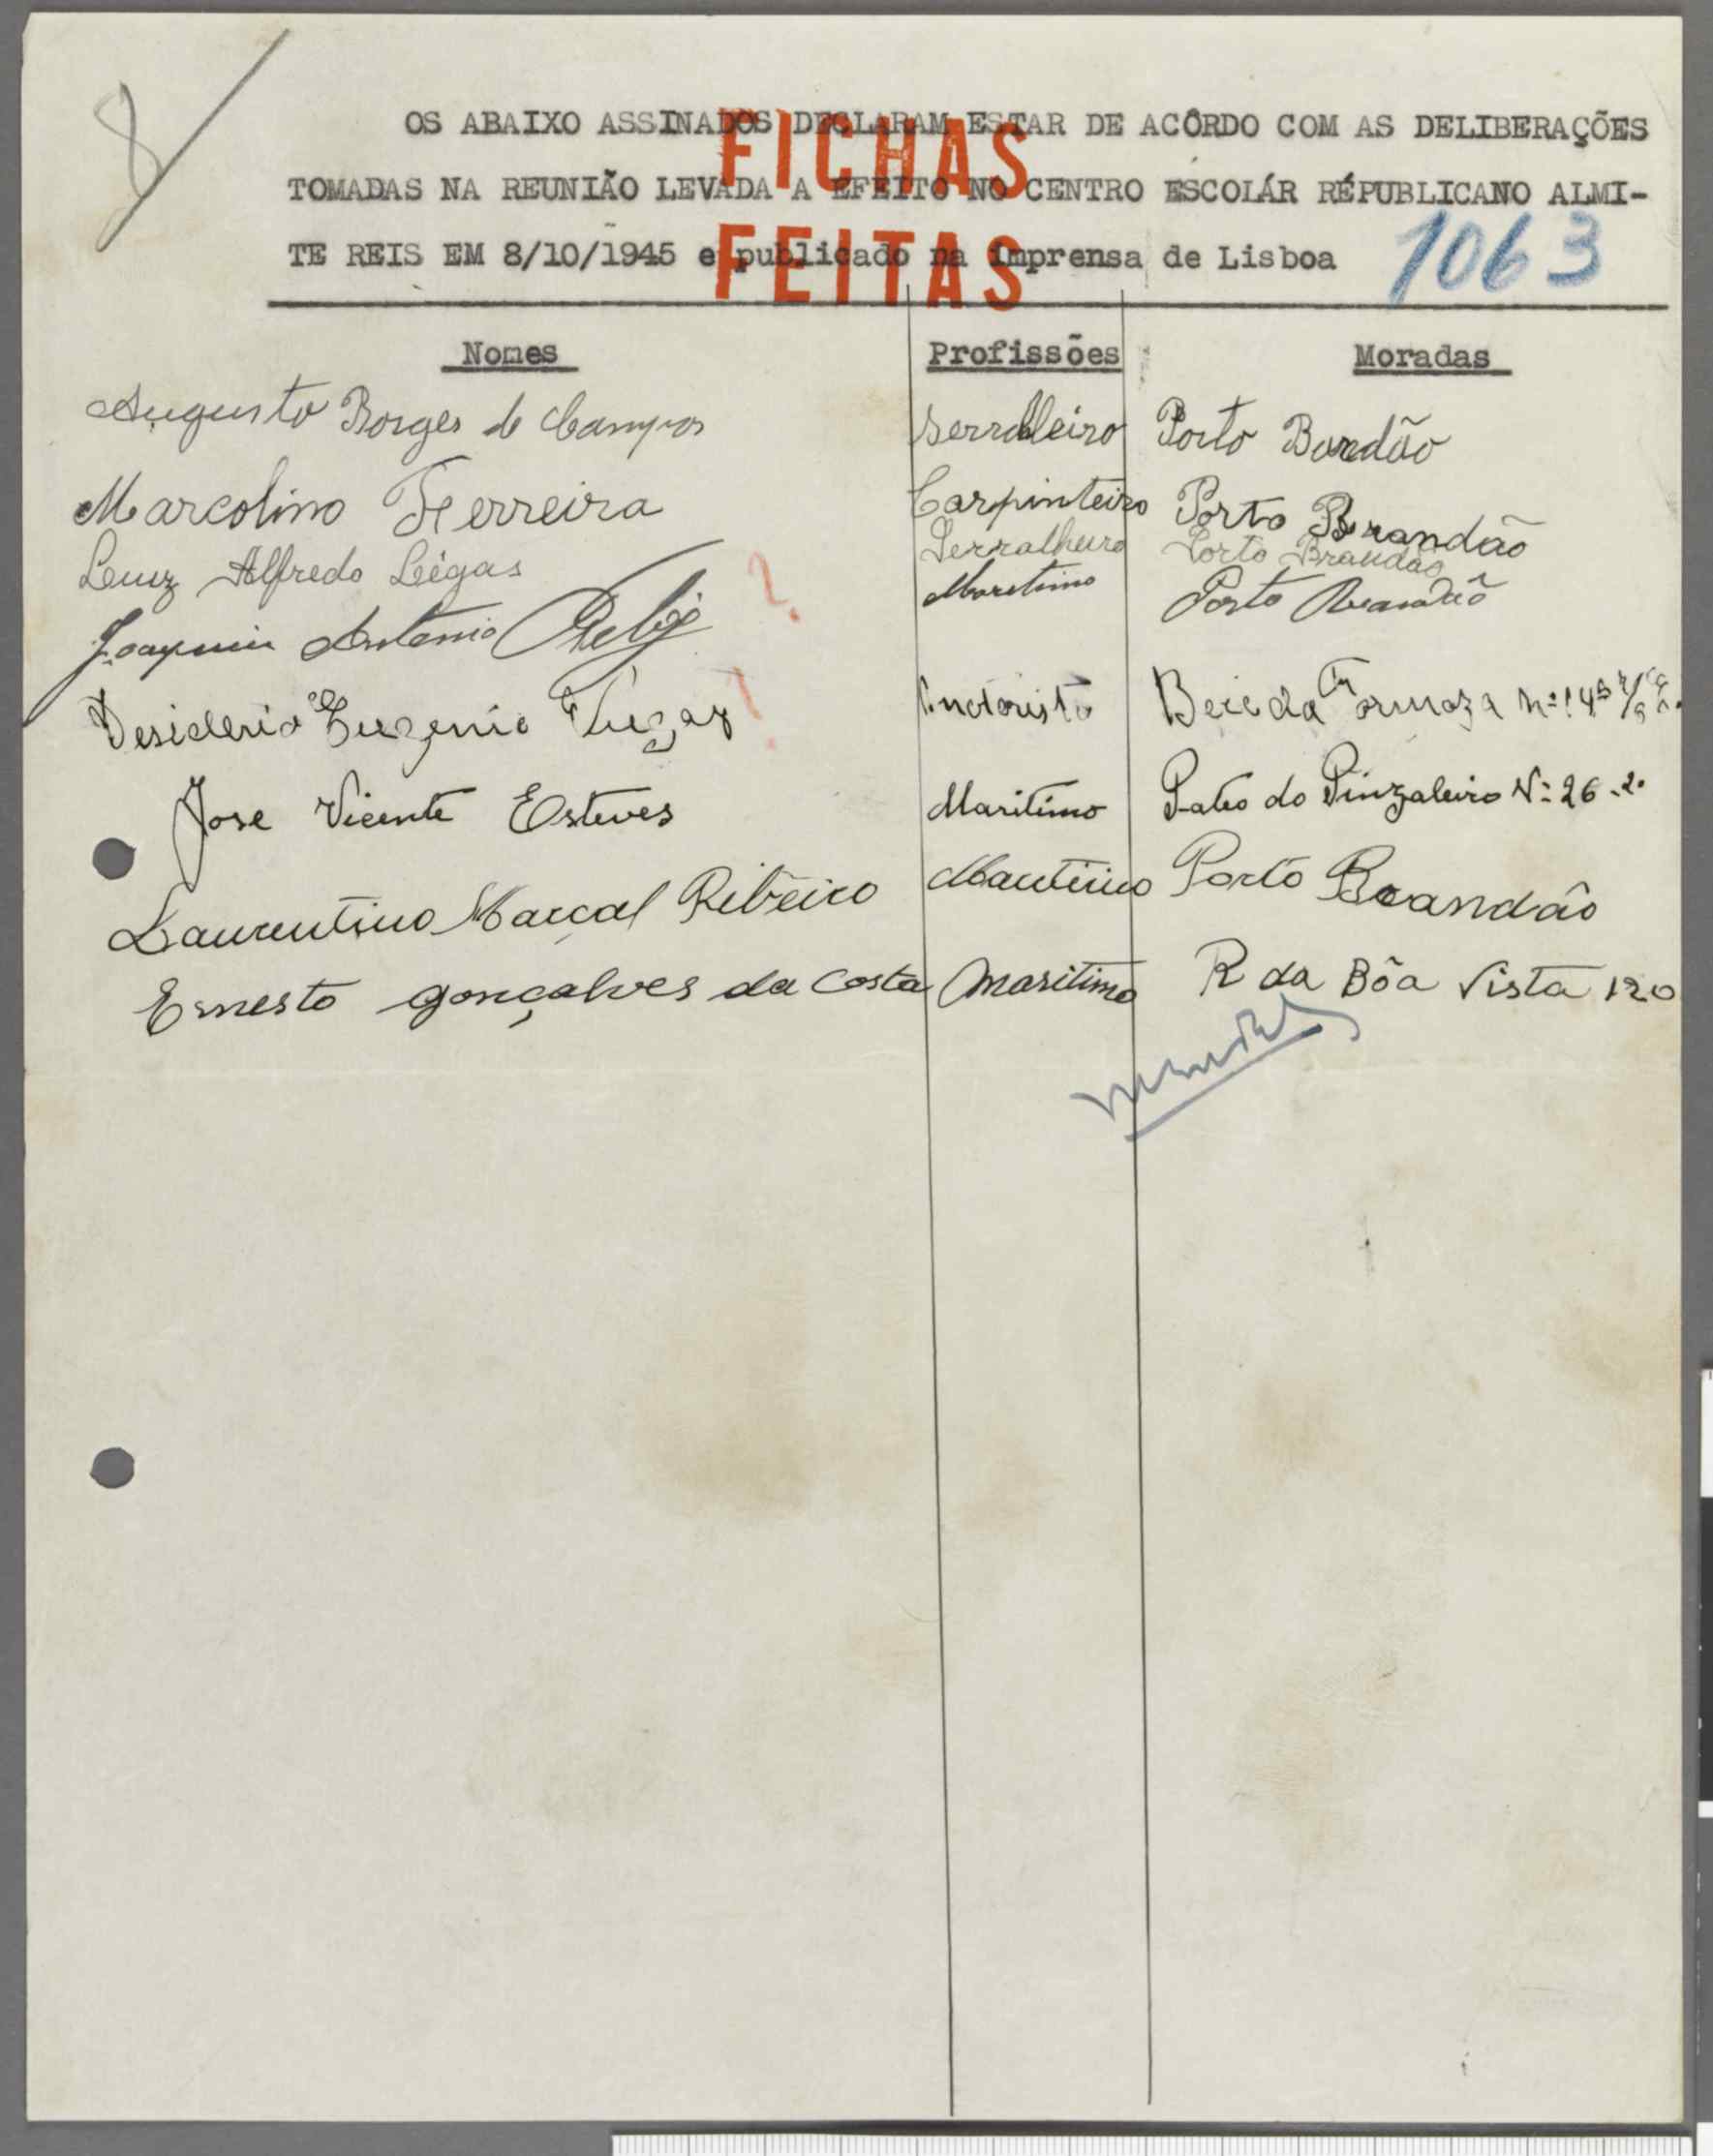 8
OS ABAIXO ASSINADOS DECLARAM ESTAR DE ACÔRDO COM AS DELIBERAÇÕES
TOMADAS NA REUNIÃO LEVADA A EFEITO NO CENTRO ESCOLÁR RÉPUBLICANO ALMI-
TE REIS EM 8/10/1945 e publicado na imprensa de Lisboa
FICHAS
FEITAS
1063
Nomes Profissões Moradas
Augusto Borges de Campos Serralleiro Porto Bandão
Marcolino Ferreira Carpinteiro Porto Brandão
Luiz Alfredo Légas Serralheiro Porto Brandão
Joaquim Antonio Maritimo Porto Brandão
?
Desiderio Eugenio Motorista Formoza
José Vicente Esteves Maritimo Pateo do Pinzaleiro Nº 26-2º
Laurentino Marçal Ribeiro Maritimo Porto Brandão
Ernesto gonçalves da Costa Maritimo R da Bôa Vista 120